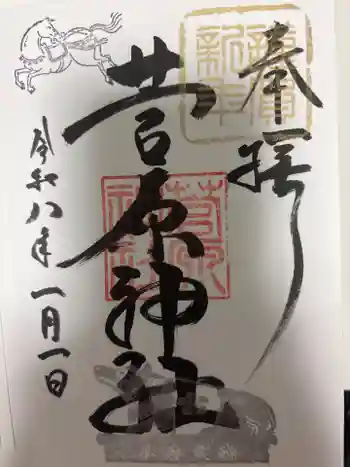 奉拝
謹賀
新年
菅原神社
令和八年一月一日